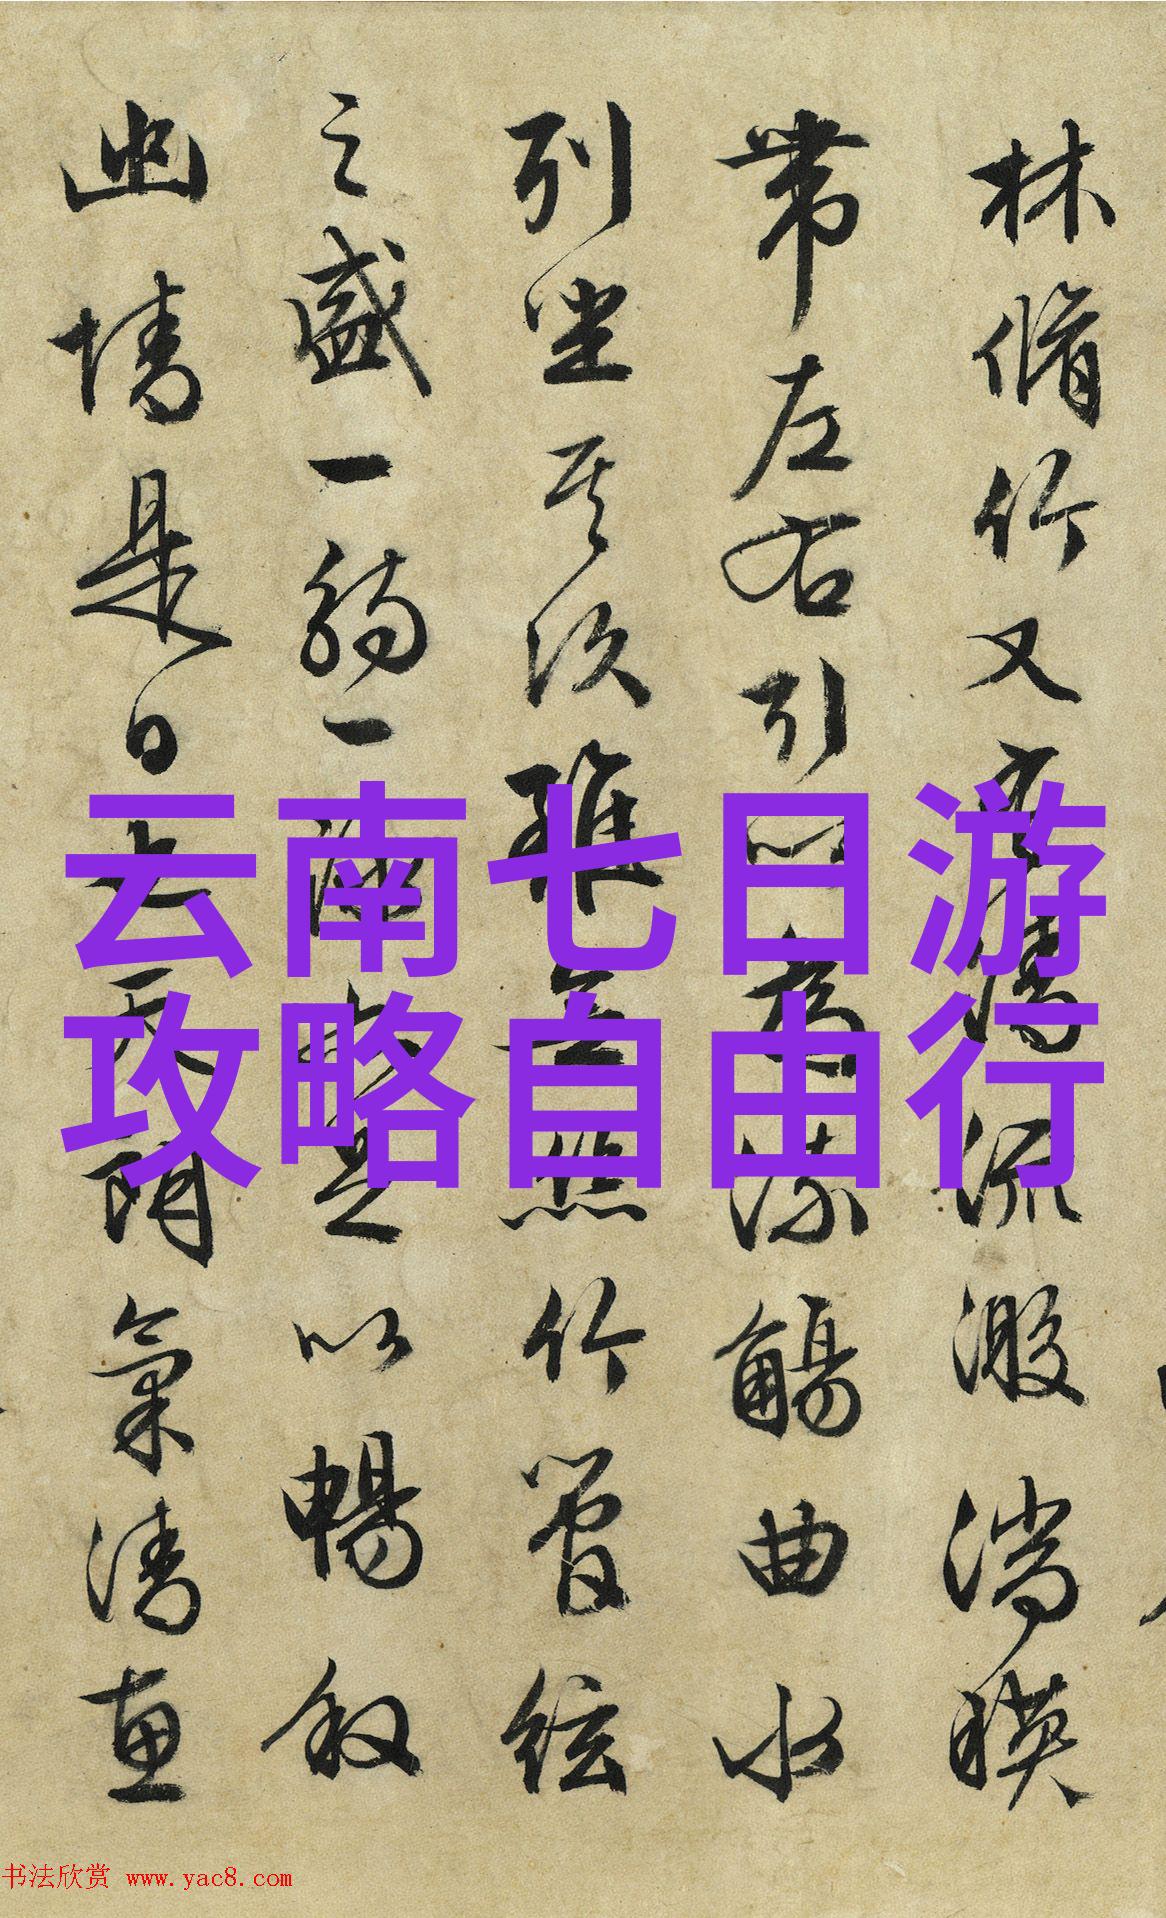 云南七日游
攻略自由行
林脩竹又有清流激湍暎
帶左右引以為流觴曲水
列坐其次雖無絲竹管絃
之盛一觴一詠亦足以暢叙
幽情是日也天朗氣清惠
书法欣赏 www.yac8.com